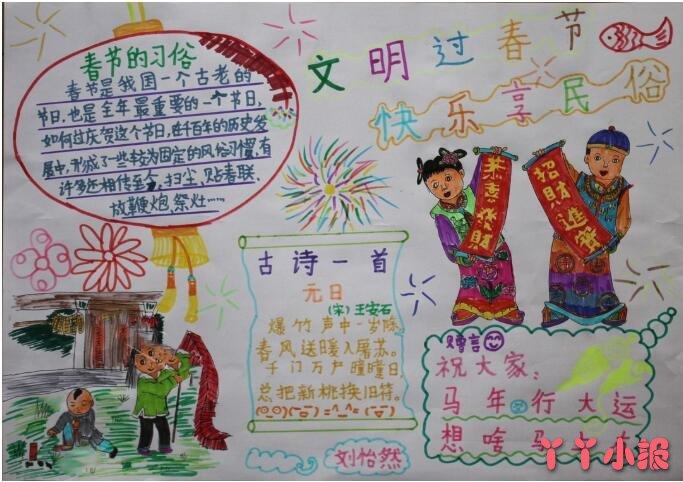 春节的习俗
春节是我国一个古老的
节日,也是全年最重要的一个节日,
如何过庆贺这个节日,在千百年的历史发
展中,形成了一些较为固定的风俗习惯,有
许多还相传至今,扫尘、贴春联、
放鞭炮、祭灶……
文明过春节
快乐享民俗
恭喜發財
招財進寶
古诗一首
元日
(宋)王安石
爆竹声中一岁除,
春风送暖入屠苏。
千门万户曈曈日,
总把新桃换旧符。
赠言
祝大家:
马年行大运
想啥马
刘怡然
丫丫小报